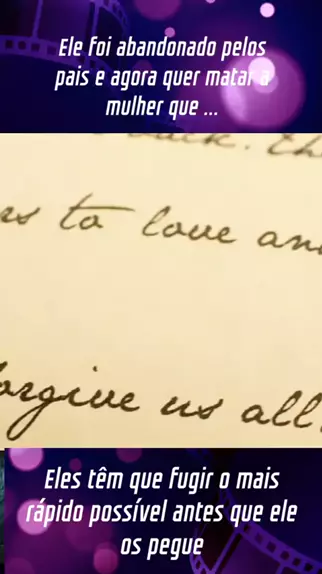 Ele foi abandonado pelos
pais e agora quer matar a
mulher que ...
back. th
rs to love an
forgive us all.
Eles têm que fugir o mais
rápido possível antes que ele
os pegue